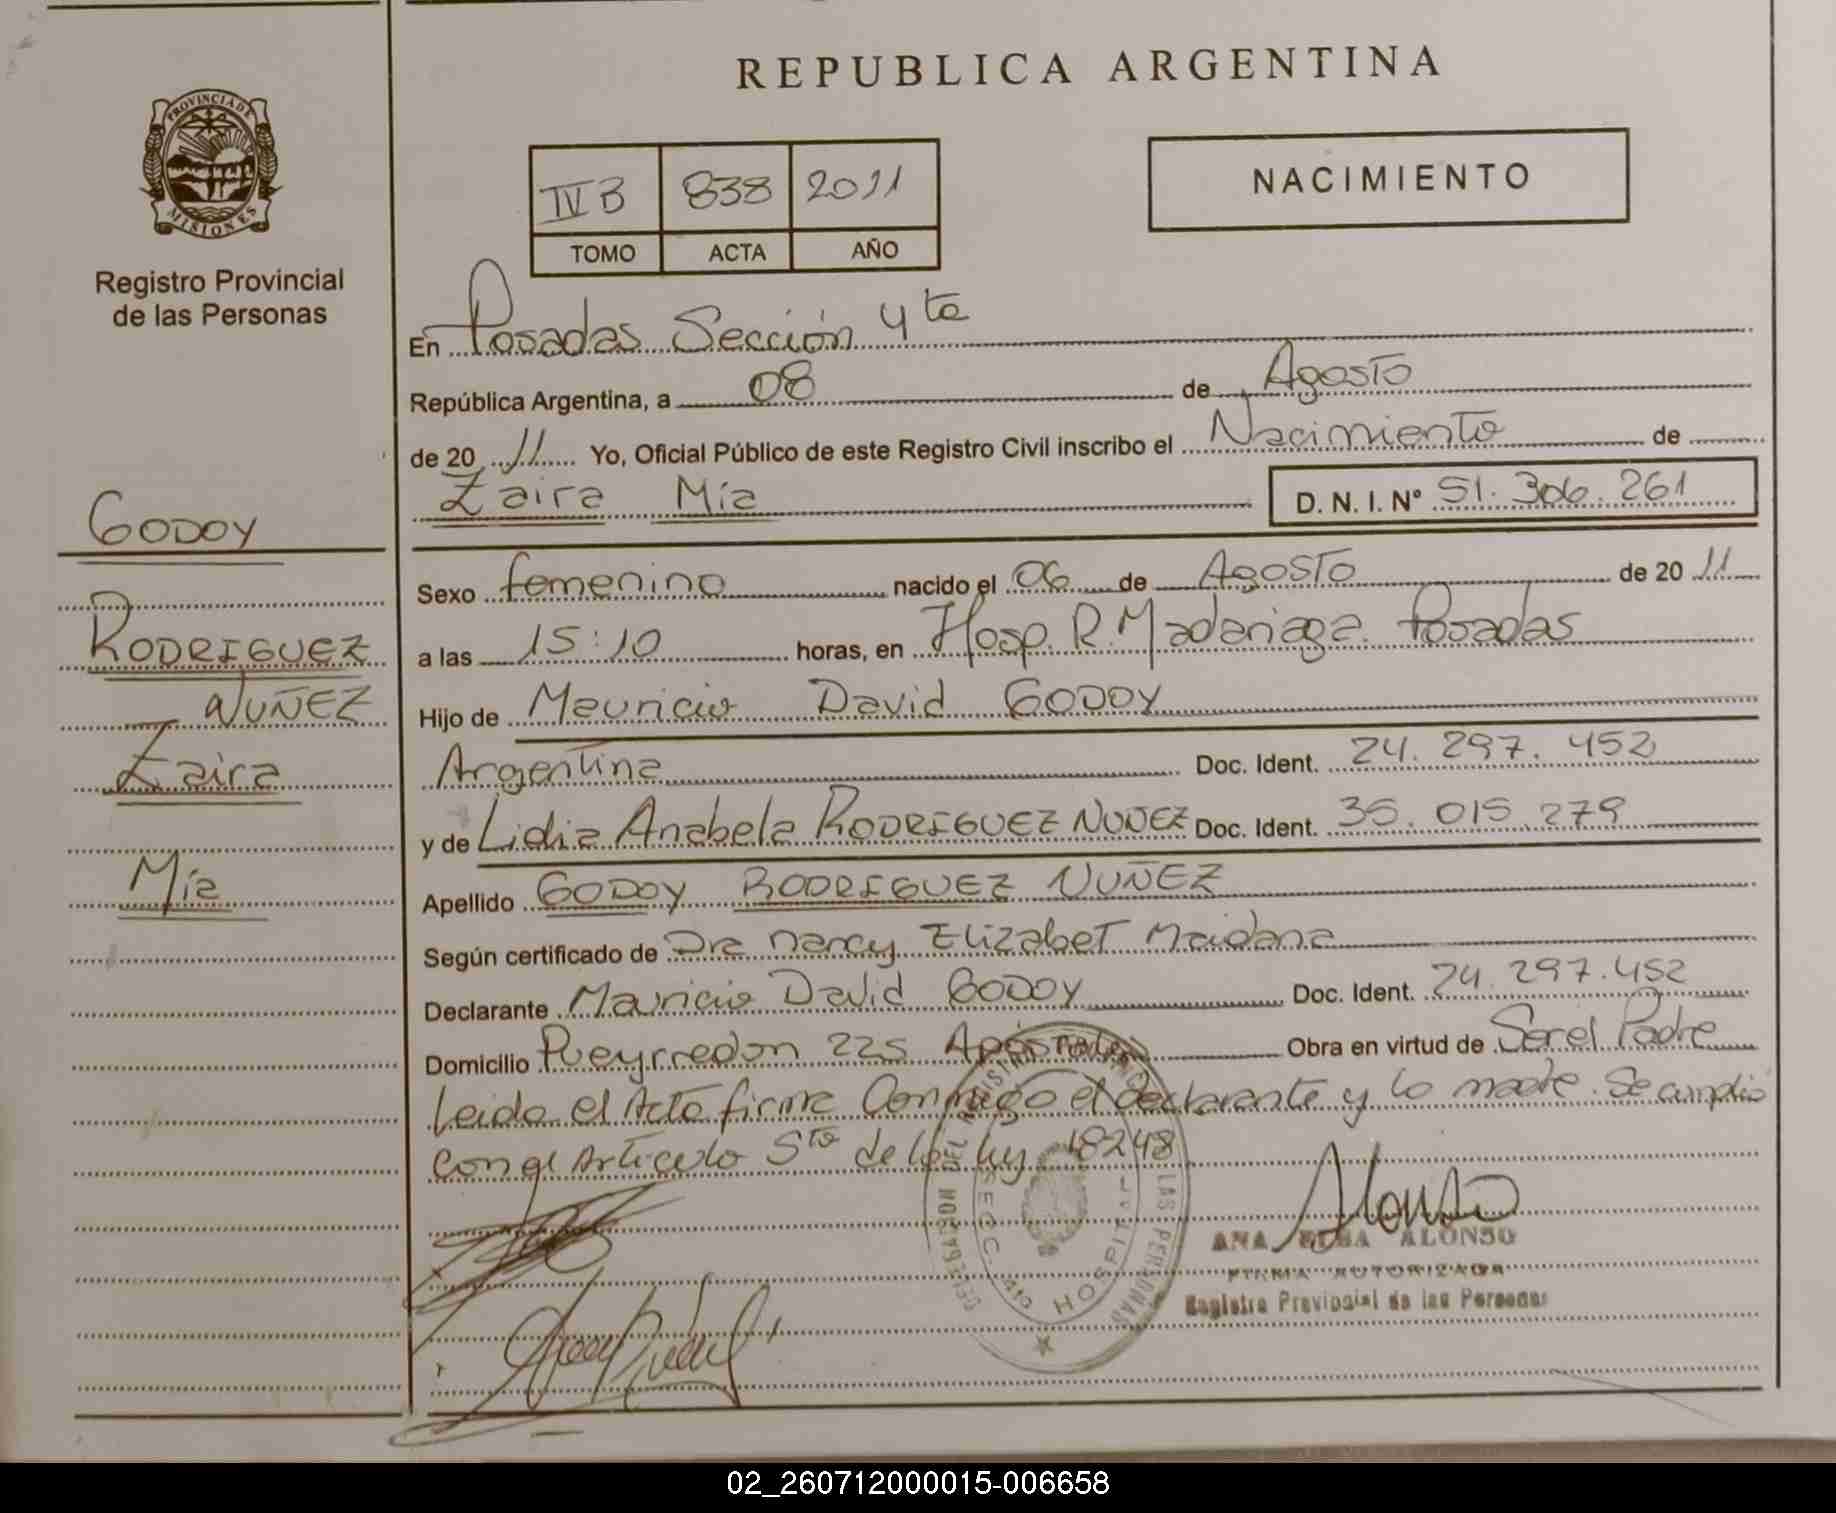 REPUBLICA ARGENTINA
PROVINCIA DE
MISIONES
Registro Provincial
de las Personas
IV B 838 2011
TOMO ACTA AÑO
NACIMIENTO
En Posadas Sección 4ta
República Argentina, a 08 de Agosto
de 20 11 Yo, Oficial Público de este Registro Civil inscribo el Nacimiento de
Zaira Mía D. N. I. N° 51.306.261
GODOY
RODRIGUEZ
NUÑEZ
Zaira
Mía
Sexo femenino nacido el 06 de Agosto de 20 11
a las 15:10 horas, en Hosp. R. Madariaga. Posadas
Hijo de Mauricio David GODOY
Argentina Doc. Ident. 24.297.452
y de Lidia Anabela RODRIGUEZ NUÑEZ Doc. Ident. 35.015.279
Apellido GODOY RODRIGUEZ NUÑEZ
Según certificado de Dra Nancy Elizabet Maidana
Declarante Mauricio David GODOY Doc. Ident. 24.297.452
Domicilio Pueyrredon 225 Apóstoles Obra en virtud de Ser el Padre
Leida el Acta firma Conmigo el declarante y la madre. Se cumplió
con el Artículo 5to de la ley 18248
SECC. 4ta HOSPITAL
LAS PERSONAS
Alonso
ANA ELSA ALONSO
FIRMA AUTORIZADA
Registro Provincial de las Personas
02_260712000015-006658